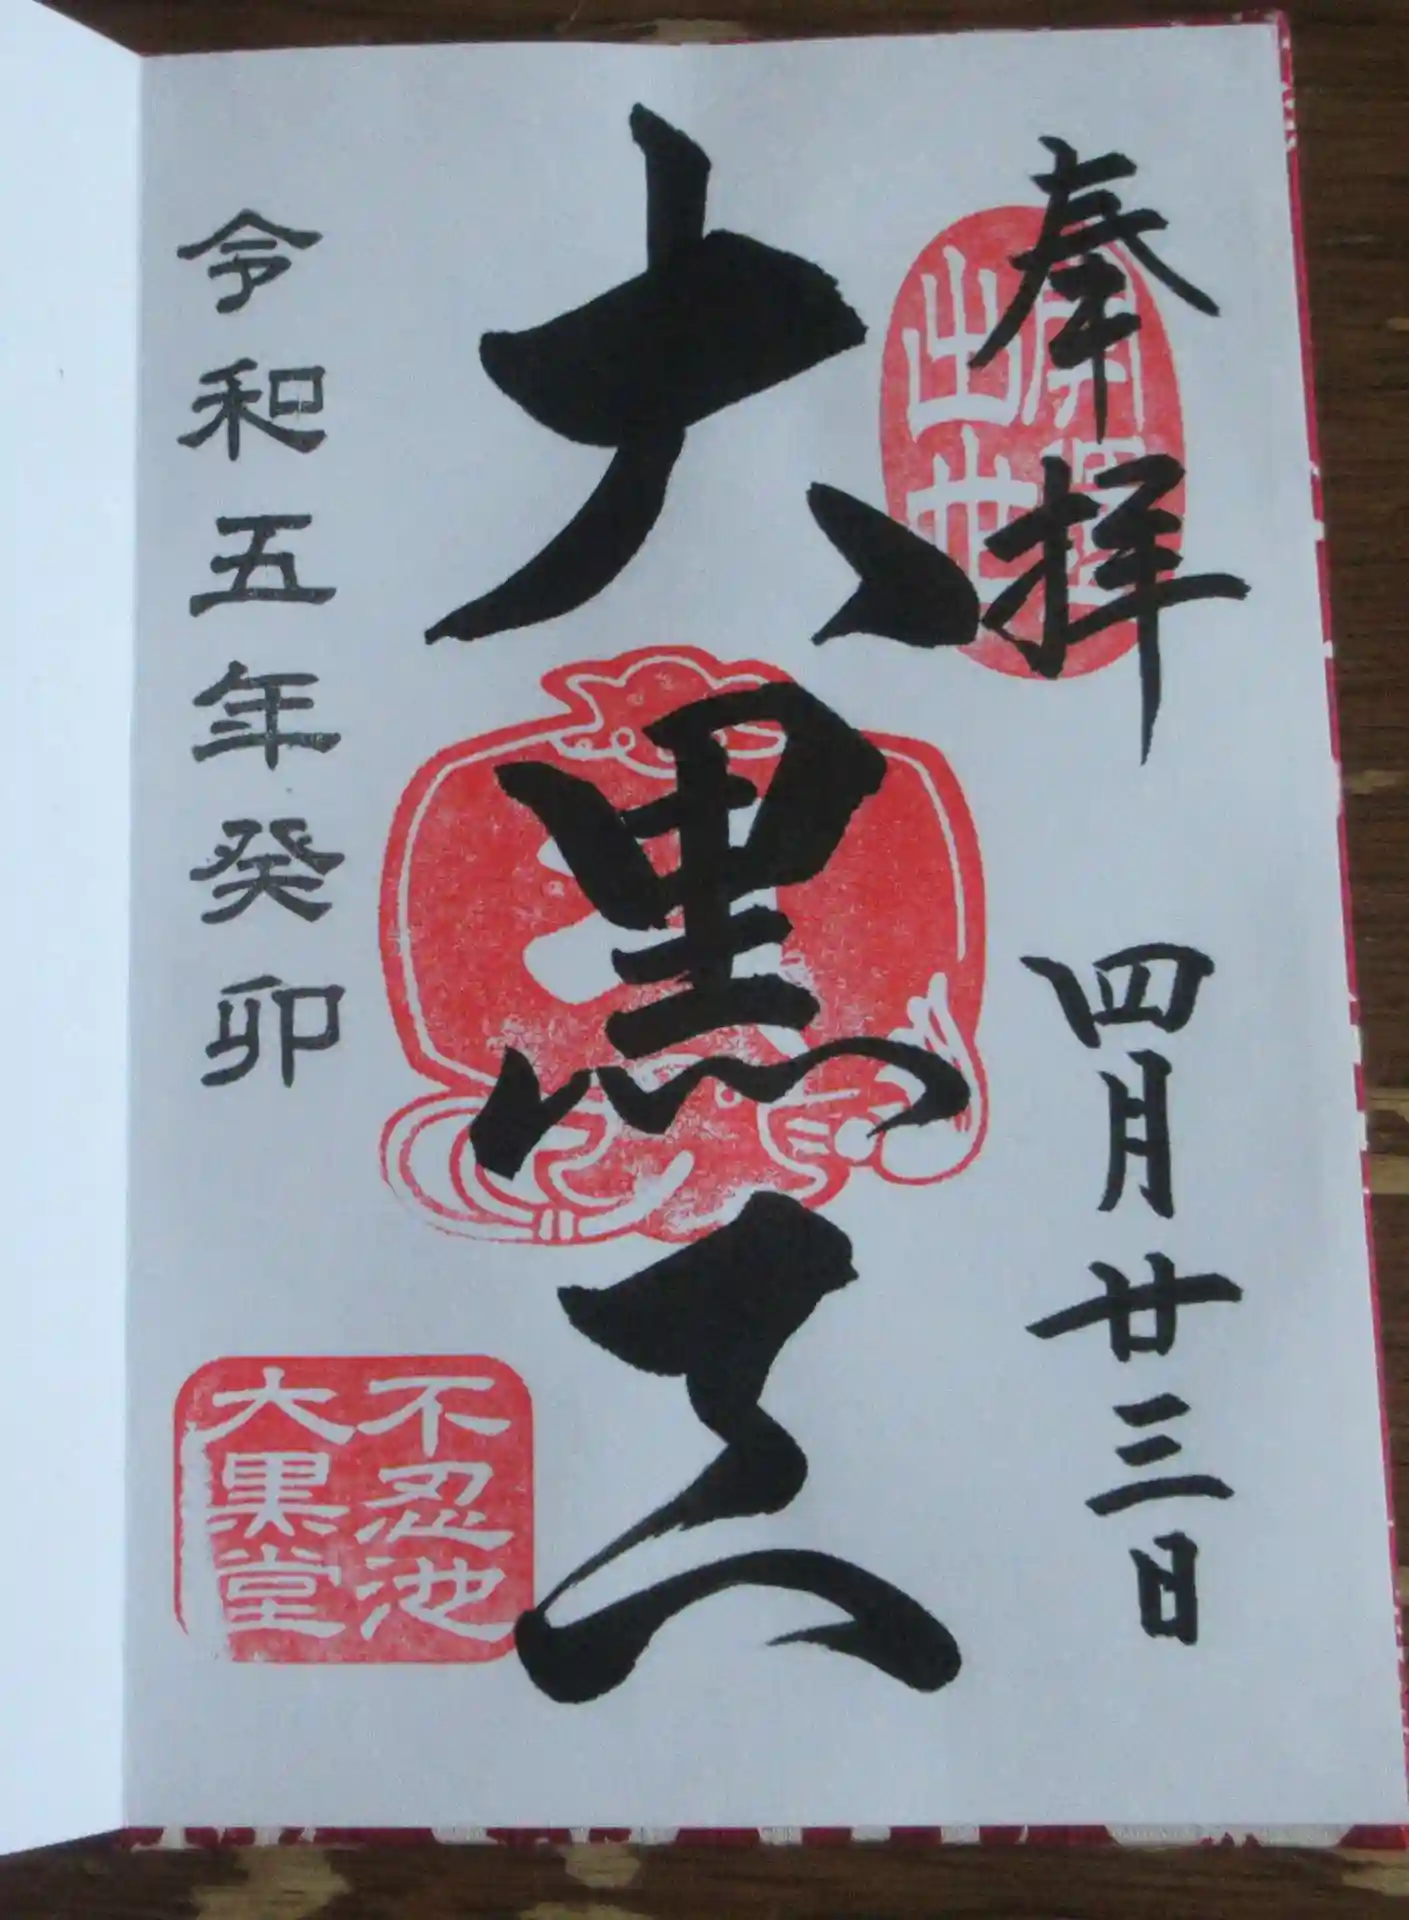 奉拝
四月廿三日
大黒天
令和五年癸卯
不忍池
大黒堂
出世